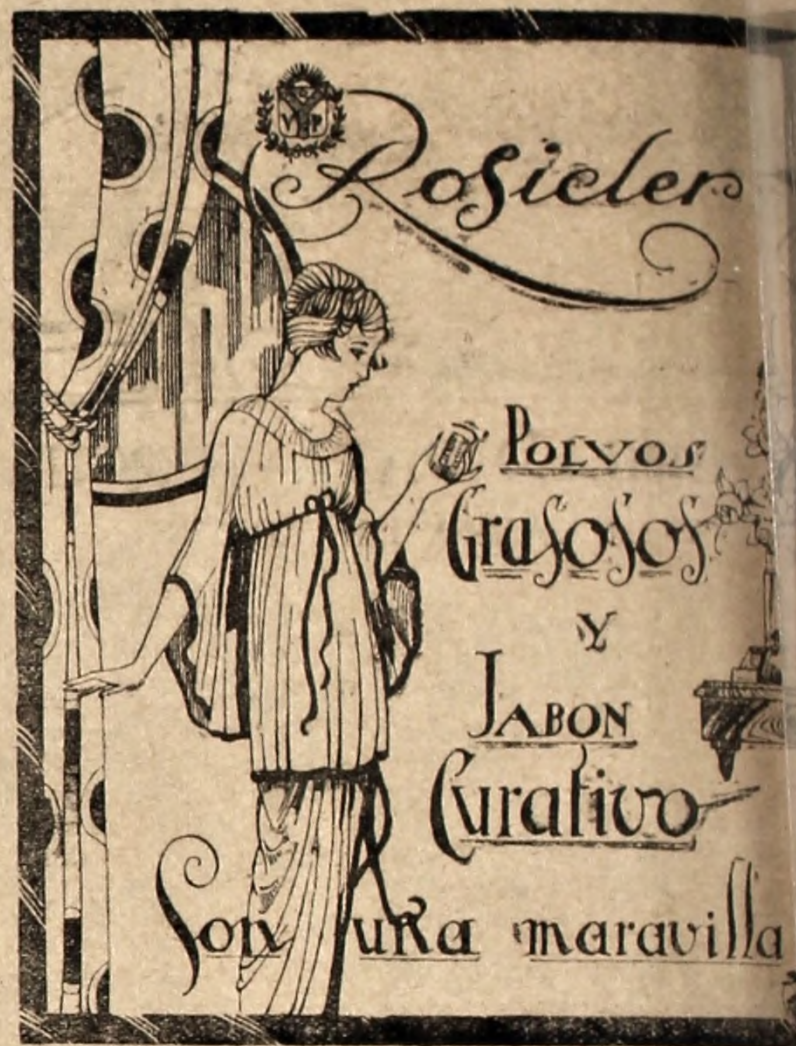 V P
Rosicler
POLVOS
Grasosos
Y
JABON
Curativo
Son una maravilla